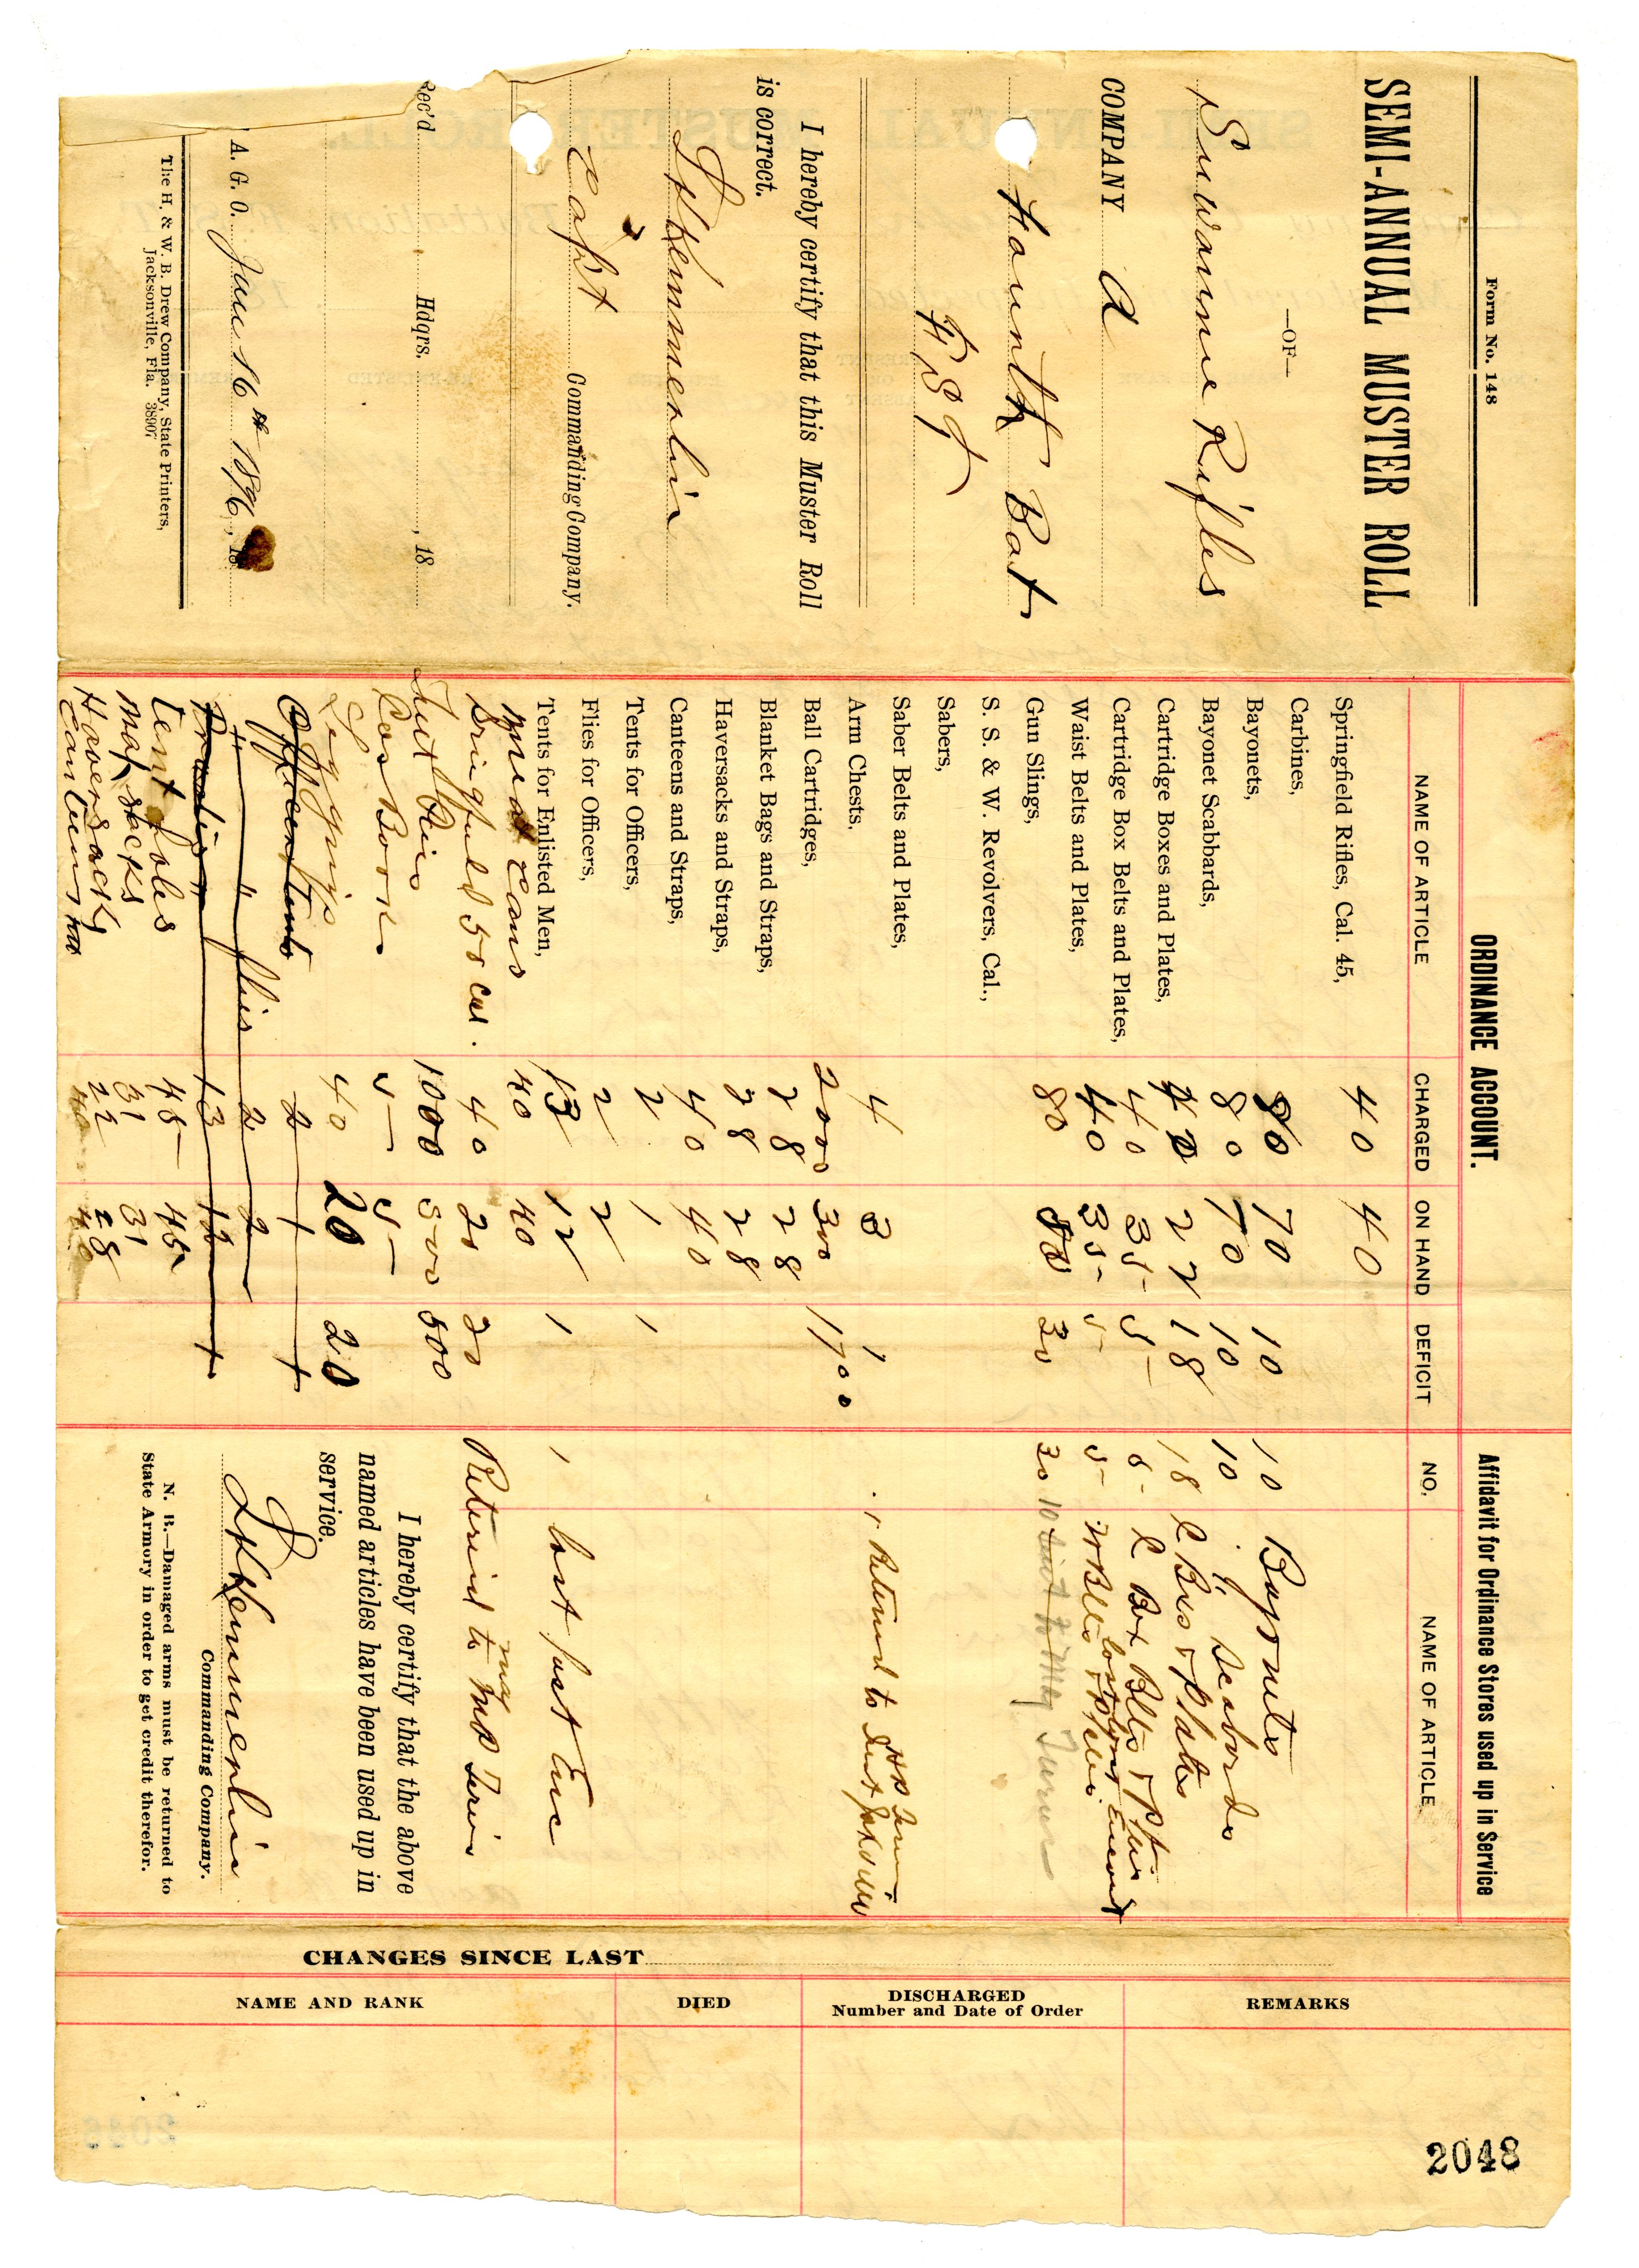 Form No. 148
SEMI-ANNUAL MUSTER ROLL
—OF—
Suwannee Rifles
COMPANY A
Fourth Bat
F S T
I hereby certify that this Muster Roll
is correct.
Capt Commanding Company.
Rec'd Hdqrs. , 18
A. G. O. June 16th 1896, 18
The H. & W. B. Drew Company, State Printers,
Jacksonville, Fla. 38907
ORDINANCE ACCOUNT.
NAME OF ARTICLE CHARGED ON HAND DEFICIT
Springfield Rifles, Cal. 45, 40 40
Carbines,
Bayonets, 80 70 10
Bayonet Scabbards, 80 70 10
Cartridge Boxes and Plates, 40 22 18
Cartridge Box Belts and Plates, 40 35 5
Waist Belts and Plates, 40 35 5
Gun Slings, 80 50 30
S. S. & W. Revolvers, Cal.,
Sabers,
Saber Belts and Plates,
Arm Chests, 4 3 1
Ball Cartridges, 2000 300 1700
Blanket Bags and Straps, 28 28
Haversacks and Straps, 28 28
Canteens and Straps, 40 40
Tents for Officers, 2 1 1
Flies for Officers, 2 2
Tents for Enlisted Men, 13 12 1
Meat Cans 40 40
Springfield 50 cal. 40 20 20
Tent Pins 1000 500 500
5 5
Leggins 40 20 20
Officers Tents 2 1 1
" " flies 2 2
13 12 1
Tent Poles 45 45
31 31
Haversacks 22 28
Canteens 40 40
Affidavit for Ordinance Stores used up in Service
NO. NAME OF ARTICLE
10 Bayonets
10 " Scabords
18 C Bxs & Plates
5 C Box Belts & Plates
5 W Belts & Plates
lost last Encmt
30 10
1 Returned to Lieut
1 lost last Enc
Returned to
I hereby certify that the above
named articles have been used up in
service.
Commanding Company.
N. B.—Damaged arms must be returned to
State Armory in order to get credit therefor.
CHANGES SINCE LAST
NAME AND RANK DIED DISCHARGED REMARKS
Number and Date of Order
2048